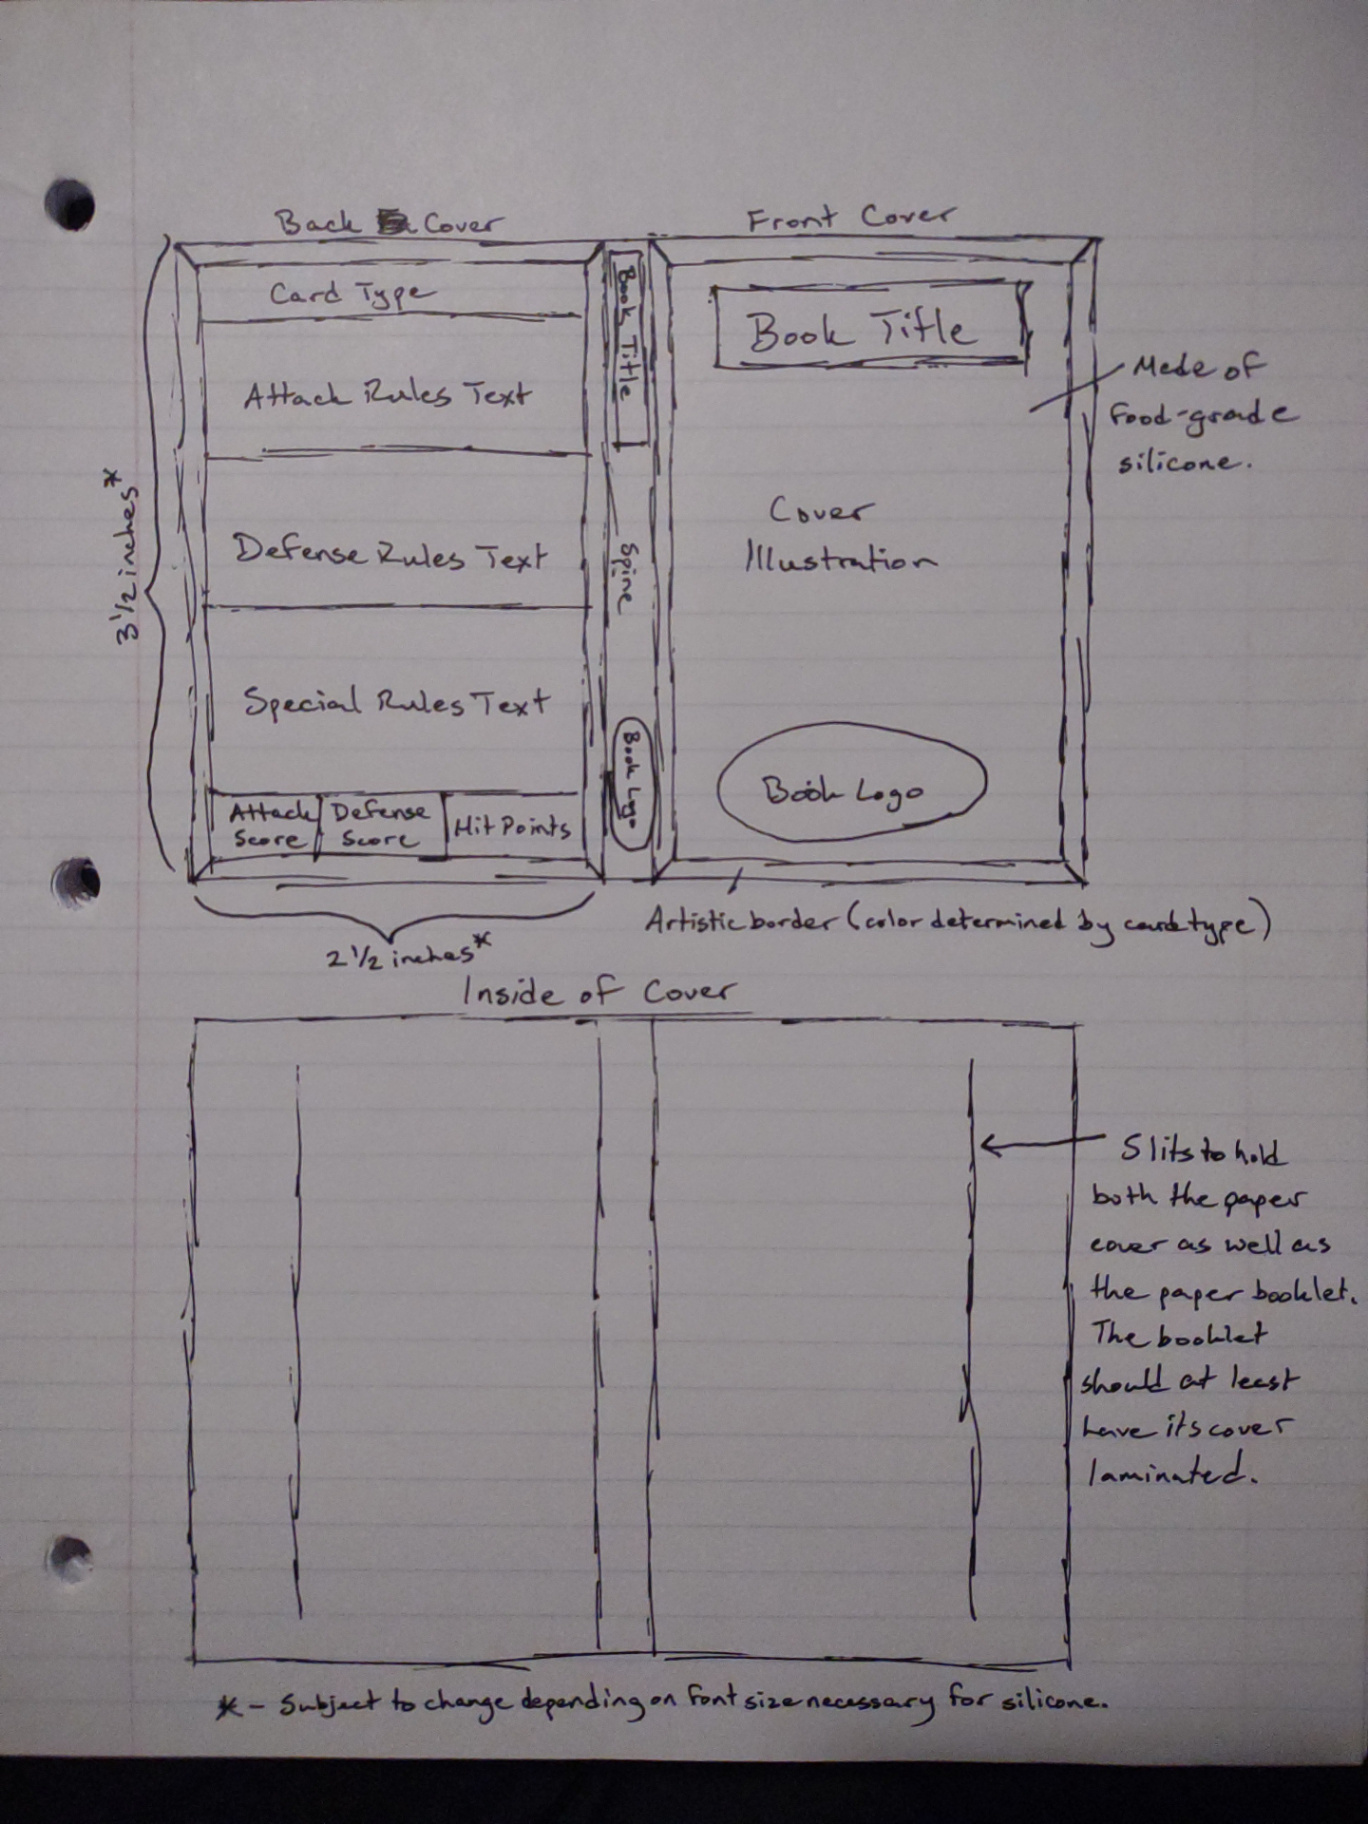 Back Cover
Front Cover
Card Type
Attack Rules Text
Defense Rules Text
Special Rules Text
Attack
Score
Defense
Score
Hit Points
3 1/2 inches*
2 1/2 inches*
Book Title
Spine
Book Logo
Book Title
Cover
Illustration
Book Logo
Made of
food-grade
silicone.
Artistic border (color determined by card type)
Inside of Cover
Slits to hold
both the paper
cover as well as
the paper booklet.
The booklet
should at least
have its cover
laminated.
* - Subject to change depending on font size necessary for silicone.